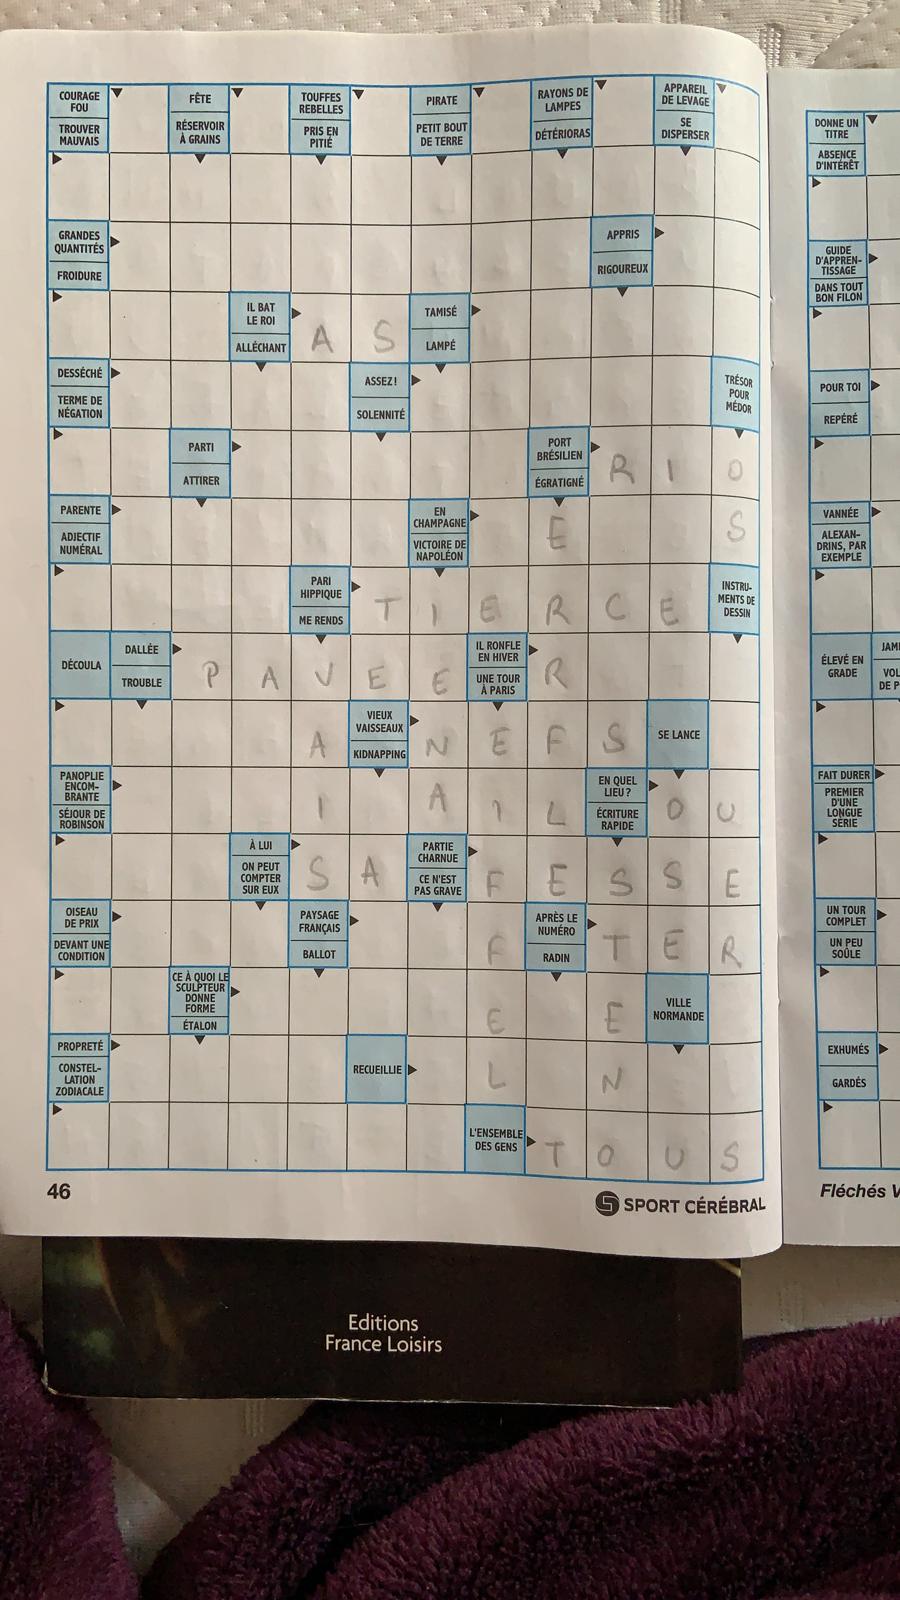 COURAGE
FOU
TROUVER
MAUVAIS
FÊTE
RÉSERVOIR
À GRAINS
TOUFFES
REBELLES
PRIS EN
PITIÉ
PIRATE
PETIT BOUT
DE TERRE
RAYONS DE
LAMPES
DÉTÉRIORAS
APPAREIL
DE LEVAGE
SE
DISPERSER
GRANDES
QUANTITÉS
FROIDURE
APPRIS
RIGOUREUX
IL BAT
LE ROI
ALLÉCHANT
A S
TAMISÉ
LAMPÉ
DESSÉCHÉ
TERME DE
NÉGATION
ASSEZ!
SOLENNITÉ
TRÉSOR
POUR
MÉDOR
PARTI
ATTIRER
PORT
BRÉSILIEN
ÉGRATIGNÉ
R I O
PARENTE
ADJECTIF
NUMÉRAL
EN
CHAMPAGNE
VICTOIRE DE
NAPOLÉON
E S
PARI
HIPPIQUE
ME RENDS
T I E R C E
INSTRU-
MENTS DE
DESSIN
DÉCOULA
DALLÉE
TROUBLE
P A V E E
IL RONFLE
EN HIVER
UNE TOUR
À PARIS
R
A
VIEUX
VAISSEAUX
KIDNAPPING
N E F S
SE LANCE
PANOPLIE
ENCOM-
BRANTE
SÉJOUR DE
ROBINSON
I A I L
EN QUEL
LIEU ?
ÉCRITURE
RAPIDE
O U
À LUI
ON PEUT
COMPTER
SUR EUX
S A
PARTIE
CHARNUE
CE N'EST
PAS GRAVE
F E S S E
OISEAU
DE PRIX
DEVANT UNE
CONDITION
PAYSAGE
FRANÇAIS
BALLOT
F
APRÈS LE
NUMÉRO
RADIN
T E R
CE À QUOI LE
SCULPTEUR
DONNE
FORME
ÉTALON
E E
VILLE
NORMANDE
PROPRETÉ
CONSTEL-
LATION
ZODIACALE
RECUEILLIE
L N
L'ENSEMBLE
DES GENS
T O U S
46
SPORT CÉRÉBRAL
DONNE UN
TITRE
ABSENCE
D'INTÉRÊT
GUIDE
D'APPREN-
TISSAGE
DANS TOUT
BON FILON
POUR TOI
REPÉRÉ
VANNÉE
ALEXAN-
DRINS, PAR
EXEMPLE
ÉLEVÉ EN
GRADE
JAM
VOL
DE P
FAIT DURER
PREMIER
D'UNE
LONGUE
SÉRIE
UN TOUR
COMPLET
UN PEU
SOÛLE
EXHUMÉS
GARDÉS
Fléchés V
Editions
France Loisirs